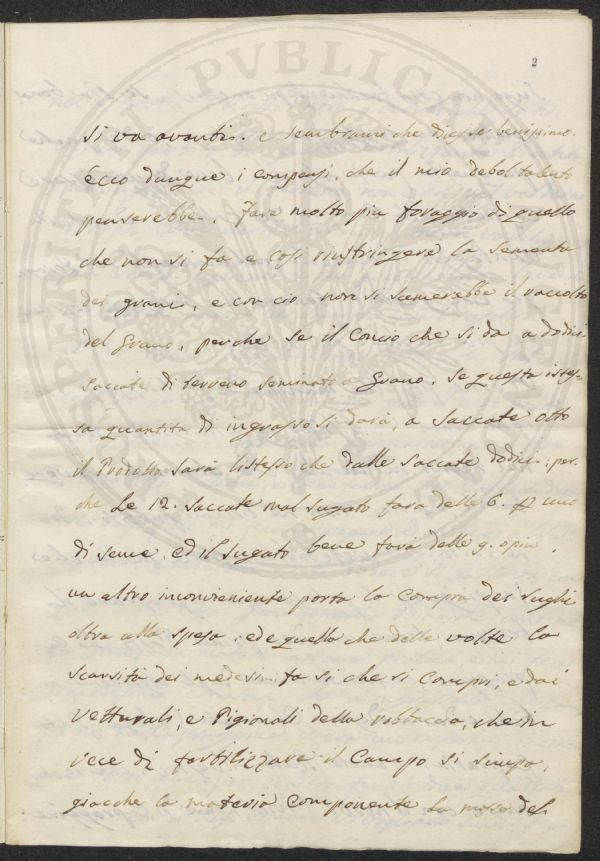 2
si va avanti. e sembrami che dica benissimo.
Ecco dunque i compensi, che il mio debol talento
penserebbe. Fare molto piu foraggio di quello
che non si fa e cosi ristringere la sementa
dei grani, e con cio non si scemerebbe il raccolto
del Grano, perche se il Concio che si da a dodici
saccate di terreno seminato a Grano, se questa istes-
sa quantita di ingrasso si darà, a saccate otto
il Prodotto sarà listesso che dalle saccate dodici: per-
che Le 12. saccate mal sugate fara delle 6. p una
di seme, ed il sugato bene farà delle 9. o piu.
un altro inconveniente porta la Compra dei sughi
oltra alla spesa: ed e quello che delle volte la
scarsità dei medesimi fa si che si Compri, e dai
Vetturali, e Pigionali della robbaccia, che in
vece di fertilizzare il Campo si
giacche la materia componente la massa del